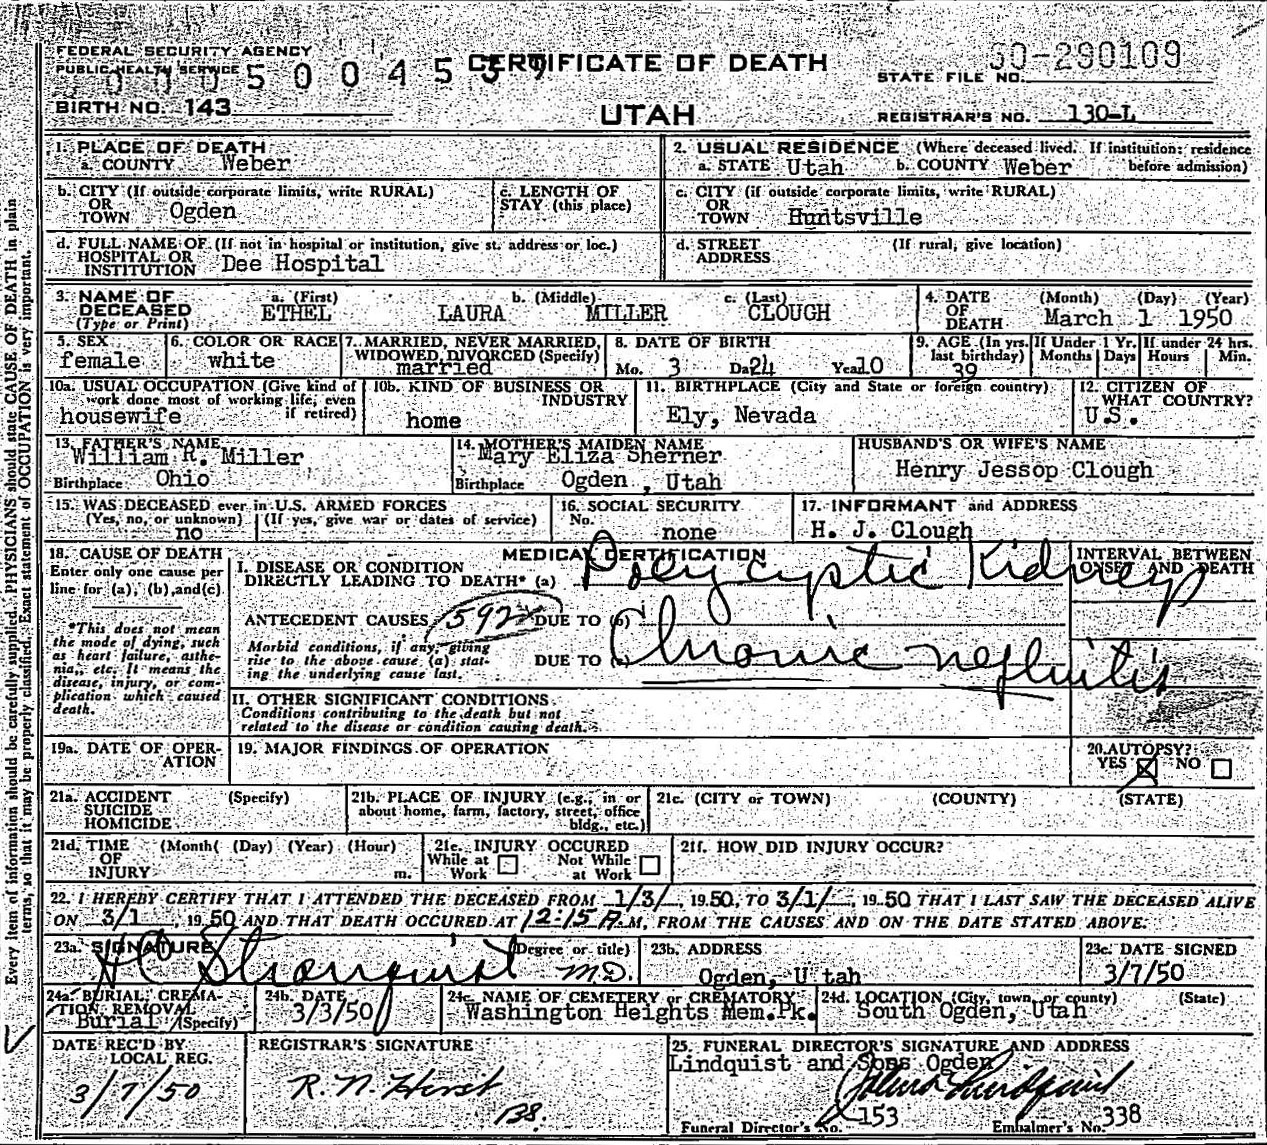 FEDERAL SECURITY AGENCY
PUBLIC HEALTH SERVICE
CERTIFICATE OF DEATH
UTAH
50-290109
STATE FILE NO.
BIRTH NO. 143
REGISTRAR'S NO. 130-L
1. PLACE OF DEATH
a. COUNTY Weber
2. USUAL RESIDENCE (Where deceased lived. If institution: residence before admission)
a. STATE Utah b. COUNTY Weber
b. CITY (If outside corporate limits, write RURAL)
OR TOWN Ogden
c. LENGTH OF STAY (this place)
c. CITY (if outside corporate limits, write RURAL)
OR TOWN Huntsville
d. FULL NAME OF (If not in hospital or institution, give st. address or loc.)
HOSPITAL OR INSTITUTION Dee Hospital
d. STREET ADDRESS (If rural, give location)
3. NAME OF DECEASED (Type or Print)
a. (First) b. (Middle) c. (Last)
ETHEL LAURA MILLER CLOUGH
4. DATE OF DEATH (Month) (Day) (Year)
March 1 1950
5. SEX
female
6. COLOR OR RACE
white
7. MARRIED, NEVER MARRIED, WIDOWED, DIVORCED (Specify)
married
8. DATE OF BIRTH
Mo. 3 Da 24 Year 10
9. AGE (In yrs. last birthday)
39
If Under 1 Yr. Months Days
If under 24 hrs. Hours Min.
10a. USUAL OCCUPATION (Give kind of work done most of working life, even if retired)
housewife
10b. KIND OF BUSINESS OR INDUSTRY
home
11. BIRTHPLACE (City and State or foreign country)
Ely, Nevada
12. CITIZEN OF WHAT COUNTRY?
U.S.
13. FATHER'S NAME
William R. Miller
Birthplace Ohio
14. MOTHER'S MAIDEN NAME
Mary Eliza Sherner
Birthplace Ogden, Utah
HUSBAND'S OR WIFE'S NAME
Henry Jessop Clough
15. WAS DECEASED ever in U.S. ARMED FORCES
(Yes, no, or unknown) (If yes, give war or dates of service)
no
16. SOCIAL SECURITY No.
none
17. INFORMANT and ADDRESS
H. J. Clough
18. CAUSE OF DEATH
Enter only one cause per line for (a), (b), and (c).
*This does not mean the mode of dying, such as heart failure, asthenia, etc. It means the disease, injury, or complication which caused death.
MEDICAL CERTIFICATION
INTERVAL BETWEEN ONSET AND DEATH
I. DISEASE OR CONDITION
DIRECTLY LEADING TO DEATH* (a) Polycyptic Kidneys
ANTECEDENT CAUSES 592x DUE TO (b)
Morbid conditions, if any, giving rise to the above cause (a) stating the underlying cause last.
DUE TO (c) Chronic nephritis
II. OTHER SIGNIFICANT CONDITIONS
Conditions contributing to the death but not related to the disease or condition causing death.
19a. DATE OF OPERATION
19. MAJOR FINDINGS OF OPERATION
20. AUTOPSY?
YES X NO
21a. ACCIDENT SUICIDE HOMICIDE (Specify)
21b. PLACE OF INJURY (e.g., in or about home, farm, factory, street, office bldg., etc.)
21c. (CITY or TOWN) (COUNTY) (STATE)
21d. TIME OF INJURY (Month) (Day) (Year) (Hour) m.
21e. INJURY OCCURED
While at Work Not While at Work
21f. HOW DID INJURY OCCUR?
22. I HEREBY CERTIFY THAT I ATTENDED THE DECEASED FROM 1/3/, 19 50, TO 3/1/, 19 50 THAT I LAST SAW THE DECEASED ALIVE
ON 3/1, 19 50 AND THAT DEATH OCCURED AT 12:15 A.M, FROM THE CAUSES AND ON THE DATE STATED ABOVE.
23a. SIGNATURE (Degree or title)
HC Stranquist M.D.
23b. ADDRESS
Ogden, Utah
23c. DATE SIGNED
3/7/50
24a. BURIAL, CREMATION, REMOVAL (Specify)
Burial
24b. DATE
3/3/50
24c. NAME OF CEMETERY or CREMATORY
Washington Heights Mem.Pk.
24d. LOCATION (City, town, or county) (State)
South Ogden, Utah
DATE REC'D BY LOCAL REG.
3/7/50
REGISTRAR'S SIGNATURE
R. N. Hirst
25. FUNERAL DIRECTOR'S SIGNATURE AND ADDRESS
Lindquist and Sons Ogden
Funeral Director's No. 153 Embalmer's No. 338
Every item of information should be carefully supplied. PHYSICIANS should state CAUSE OF DEATH in plain
terms, so that it may be properly classified. Exact statement of OCCUPATION is very important.